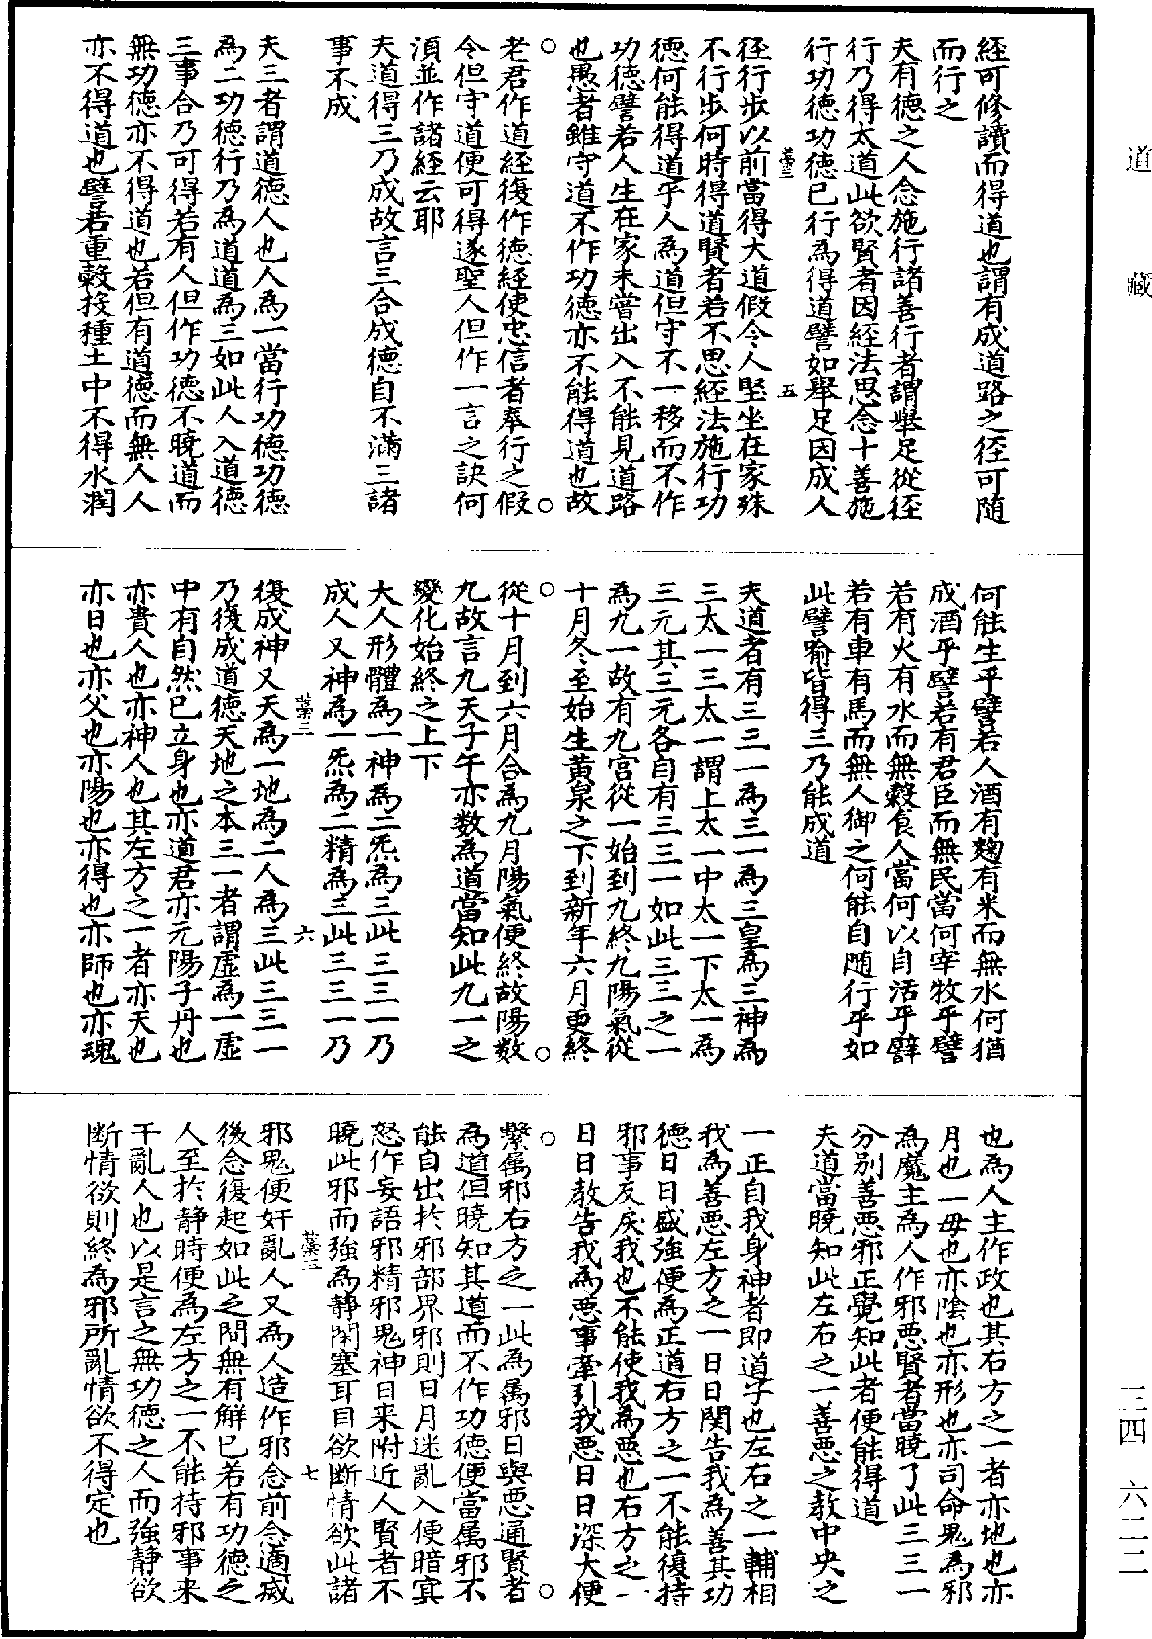 道藏
經可修讀而得道也謂有成道路之徑可隨
而行之
夫有德之人念施行諸善行者謂舉足從徑
行乃得太道此欲賢者因經法思念十善施
行功德功德已行為得道譬如舉足因成人
藁三 五
徑行步以前當得大道假令人堅坐在家殊
不行步何時得道賢者若不思經法施行功
德何能得道乎人為道但守不一移而不作
功德譬若人生在家未嘗出入不能見道路
也愚者雖守道不作功德亦不能得道也故
老君作道經復作德經使忠信者奉行之假
令但守道便可得遂聖人但作一言之訣何
須並作諸經云耶
夫道得三乃成故言三合成德自不滿三諸
事不成
夫三者謂道德人也人為一當行功德功德
為二功德行乃為道道為三如此人入道德
三事合乃可得若有人但作功德不曉道而
無功德亦不得道也若但有道德而無人人
亦不得道也譬若重穀挍種土中不得水潤
何能生乎譬若人酒有麴有米而無水何猶
成酒乎譬若有君臣而無民當何宰牧乎譬
若有火有水而無穀食人當何以自活乎譬
若有車有馬而無人御之何能自隨行乎如
此譬喻皆得三乃能成道
夫道者有三三一為三一為三皇為三神為
三太一三太一謂上太一中太一下太一為
三元其三元各自有三三一如此三三之一
為九一故有九宮從一始到九終九陽氣從
十月冬至始生黃泉之下到新年六月更終
從十月到六月合為九月陽氣便終故陽數
九故言九天子午亦数為道當知此九一之
變化始終之上下
大人形體為一神為二炁為三此三三一乃
成人又神為一炁為二精為三此三三一乃
藁三 六
復成神又天為一地為二人為三此三三一
乃復成道德天地之本三一者謂虛為一虛
中有自然已立身也亦道君亦元陽子丹也
亦貴人也亦神人也其左方之一者亦天也
亦日也亦父也亦陽也亦得也亦師也亦魂
也為人主作政也其右方之一者亦地也亦
月也一毋也亦陰也亦形也亦司命鬼為邪
為魔主為人作邪惡賢者當曉了此三三一
分別善惡邪正覺知此者便能得道
夫道當曉知此左右之一善惡之教中央之
一正自我身神者即道子也左右之一輔相
我為善惡左方之一日日関告我為善其功
德日日盛強便為正道右方之一不能復持
邪事反戾我也不能使我為惡也右方之一
日日教告我為惡事牽引我惡日日深大便
繫屬邪右方之一此為屬邪曰與惡通賢者
為道但曉知其道而不作功德便當屬邪不
能自出於邪部界邪則日月迷亂入便暗㝠
怒作妄語邪精邪鬼神日来附近人賢者不
曉此邪而強為靜閉塞耳目欲断情欲此諸
藁三 七
邪鬼便奸亂人又為人造作邪念前念適滅
後念復起如此之間無有解已若有功德之
人至於靜時便為左方之一不能持邪事来
干亂人也以是言之無功德之人而強靜欲
断情欲則終為邪所亂情欲不得定也
三四 六二二